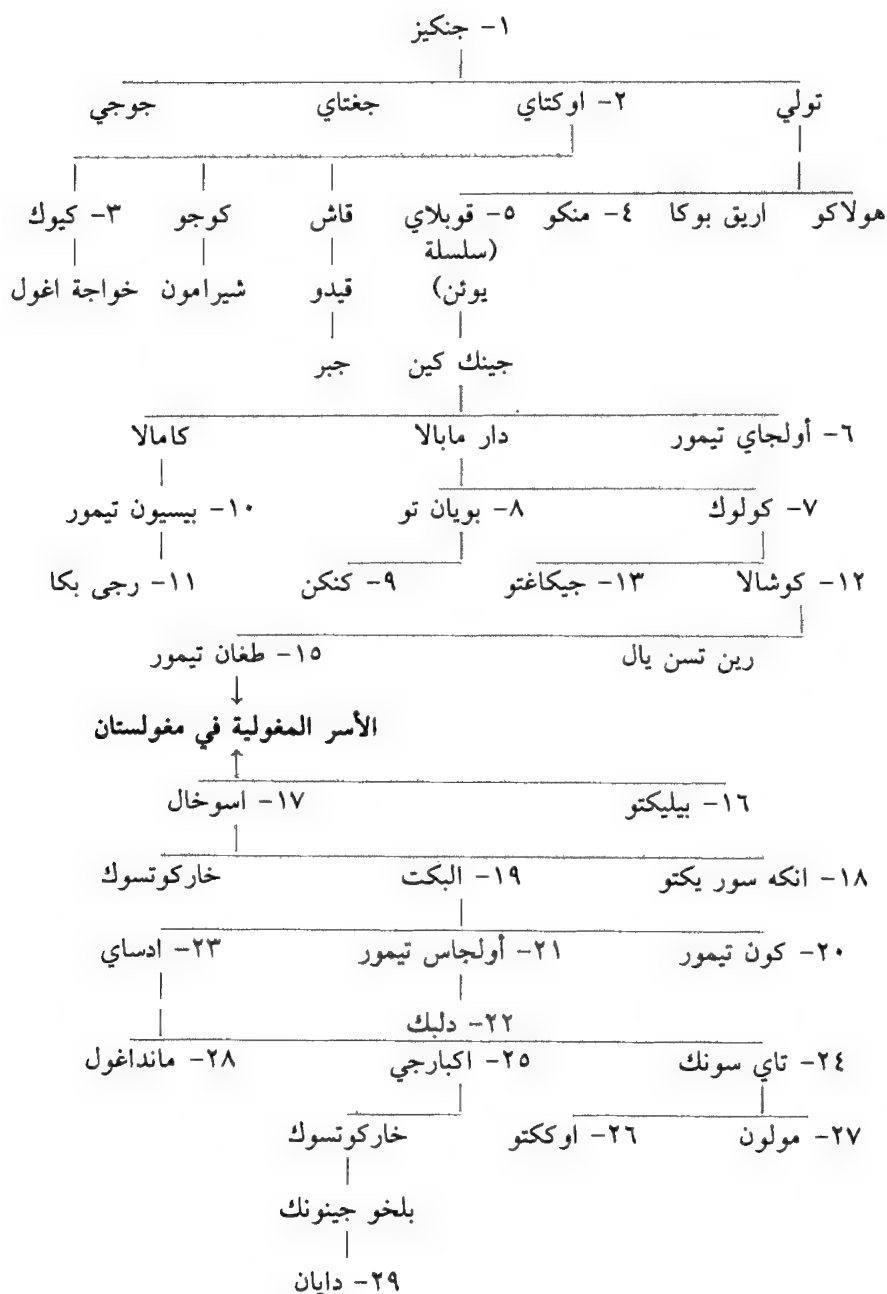 ١- جنكيز
تولي ٢- اوكتاي جغتاي جوجي
هولاكو اريق بوكا ٤- منكو ٥- قوبلاي قاش كوجو ٣- كيوك
(سلسلة
يوئن) قيدو شيرامون خواجة اغول
جينك كين جبر
٦- أولجاي تيمور دار مابالا كامالا
٧- كولوك ٨- بويان تو ١٠- بيسيون تيمور
١٢- كوشالا ١٣- جيكاغتو ٩- كنكن ١١- رجى بكا
رين تسن يال ١٥- طغان تيمور
الأسر المغولية في مغولستان
١٦- بيليكتو ١٧- اسوخال
١٨- انكه سور يكتو ١٩- البكت خاركوتسوك
٢٠- كون تيمور ٢١- أولجاس تيمور ٢٣- ادساي
٢٢- دلبك
٢٤- تاي سونك ٢٥- اكبارجي ٢٨- مانداغول
٢٧- مولون ٢٦- اوككتو خاركوتسوك
بلخو جينونك
٢٩- دايان